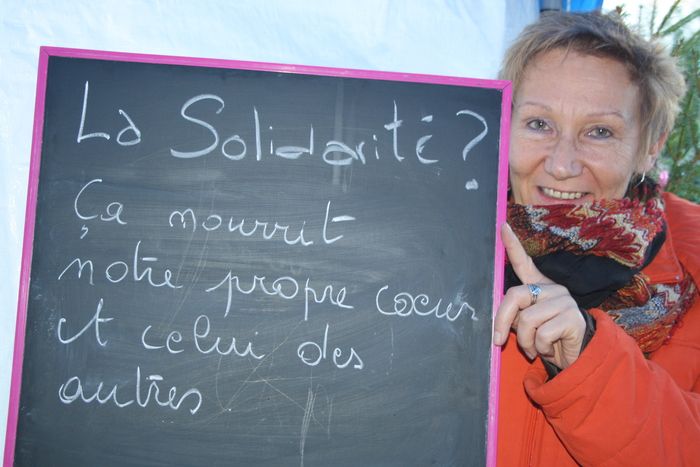 La Solidarité?
Ça nourrit
notre propre coeur
et celui des
autres